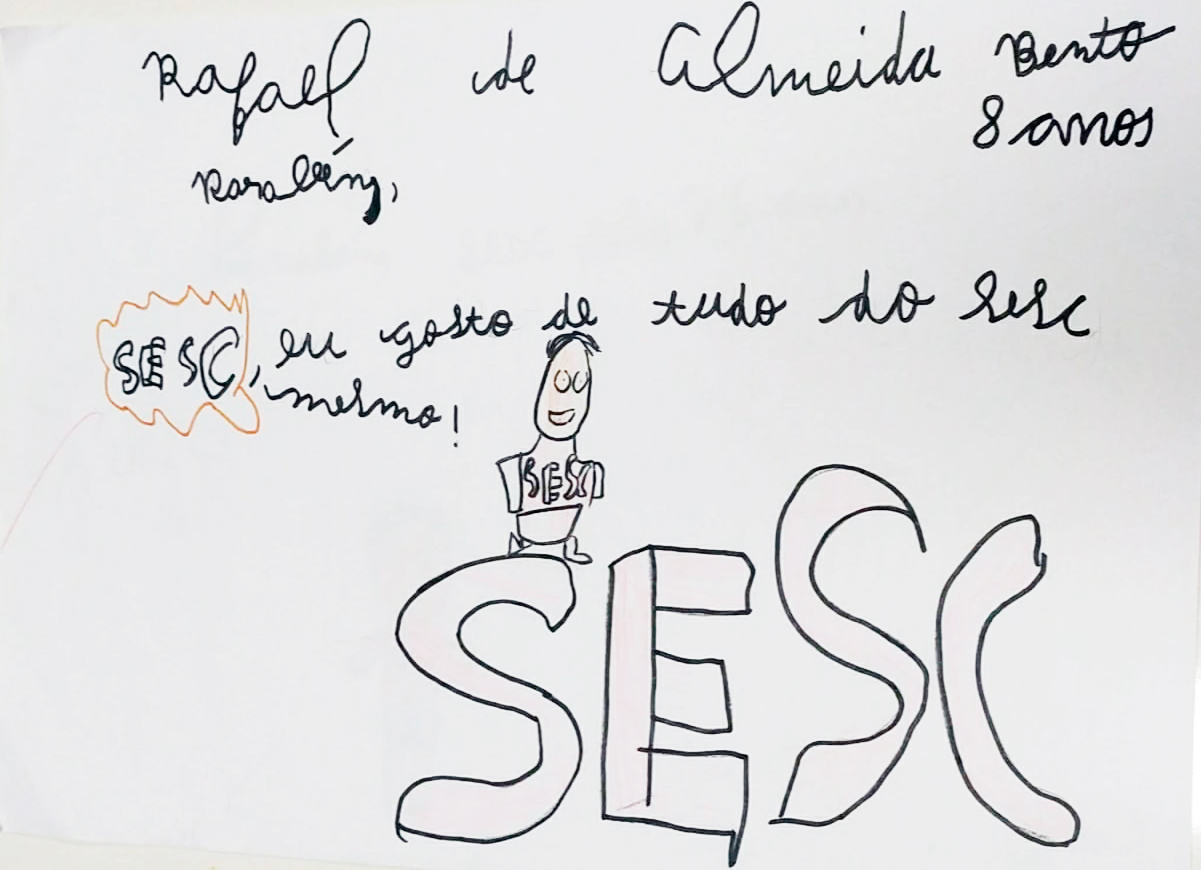 Rafael de Almeida Bento
8 anos
Parabéns,
SESC, eu gosto de tudo do Sesc
mesmo!
SESC
SESC